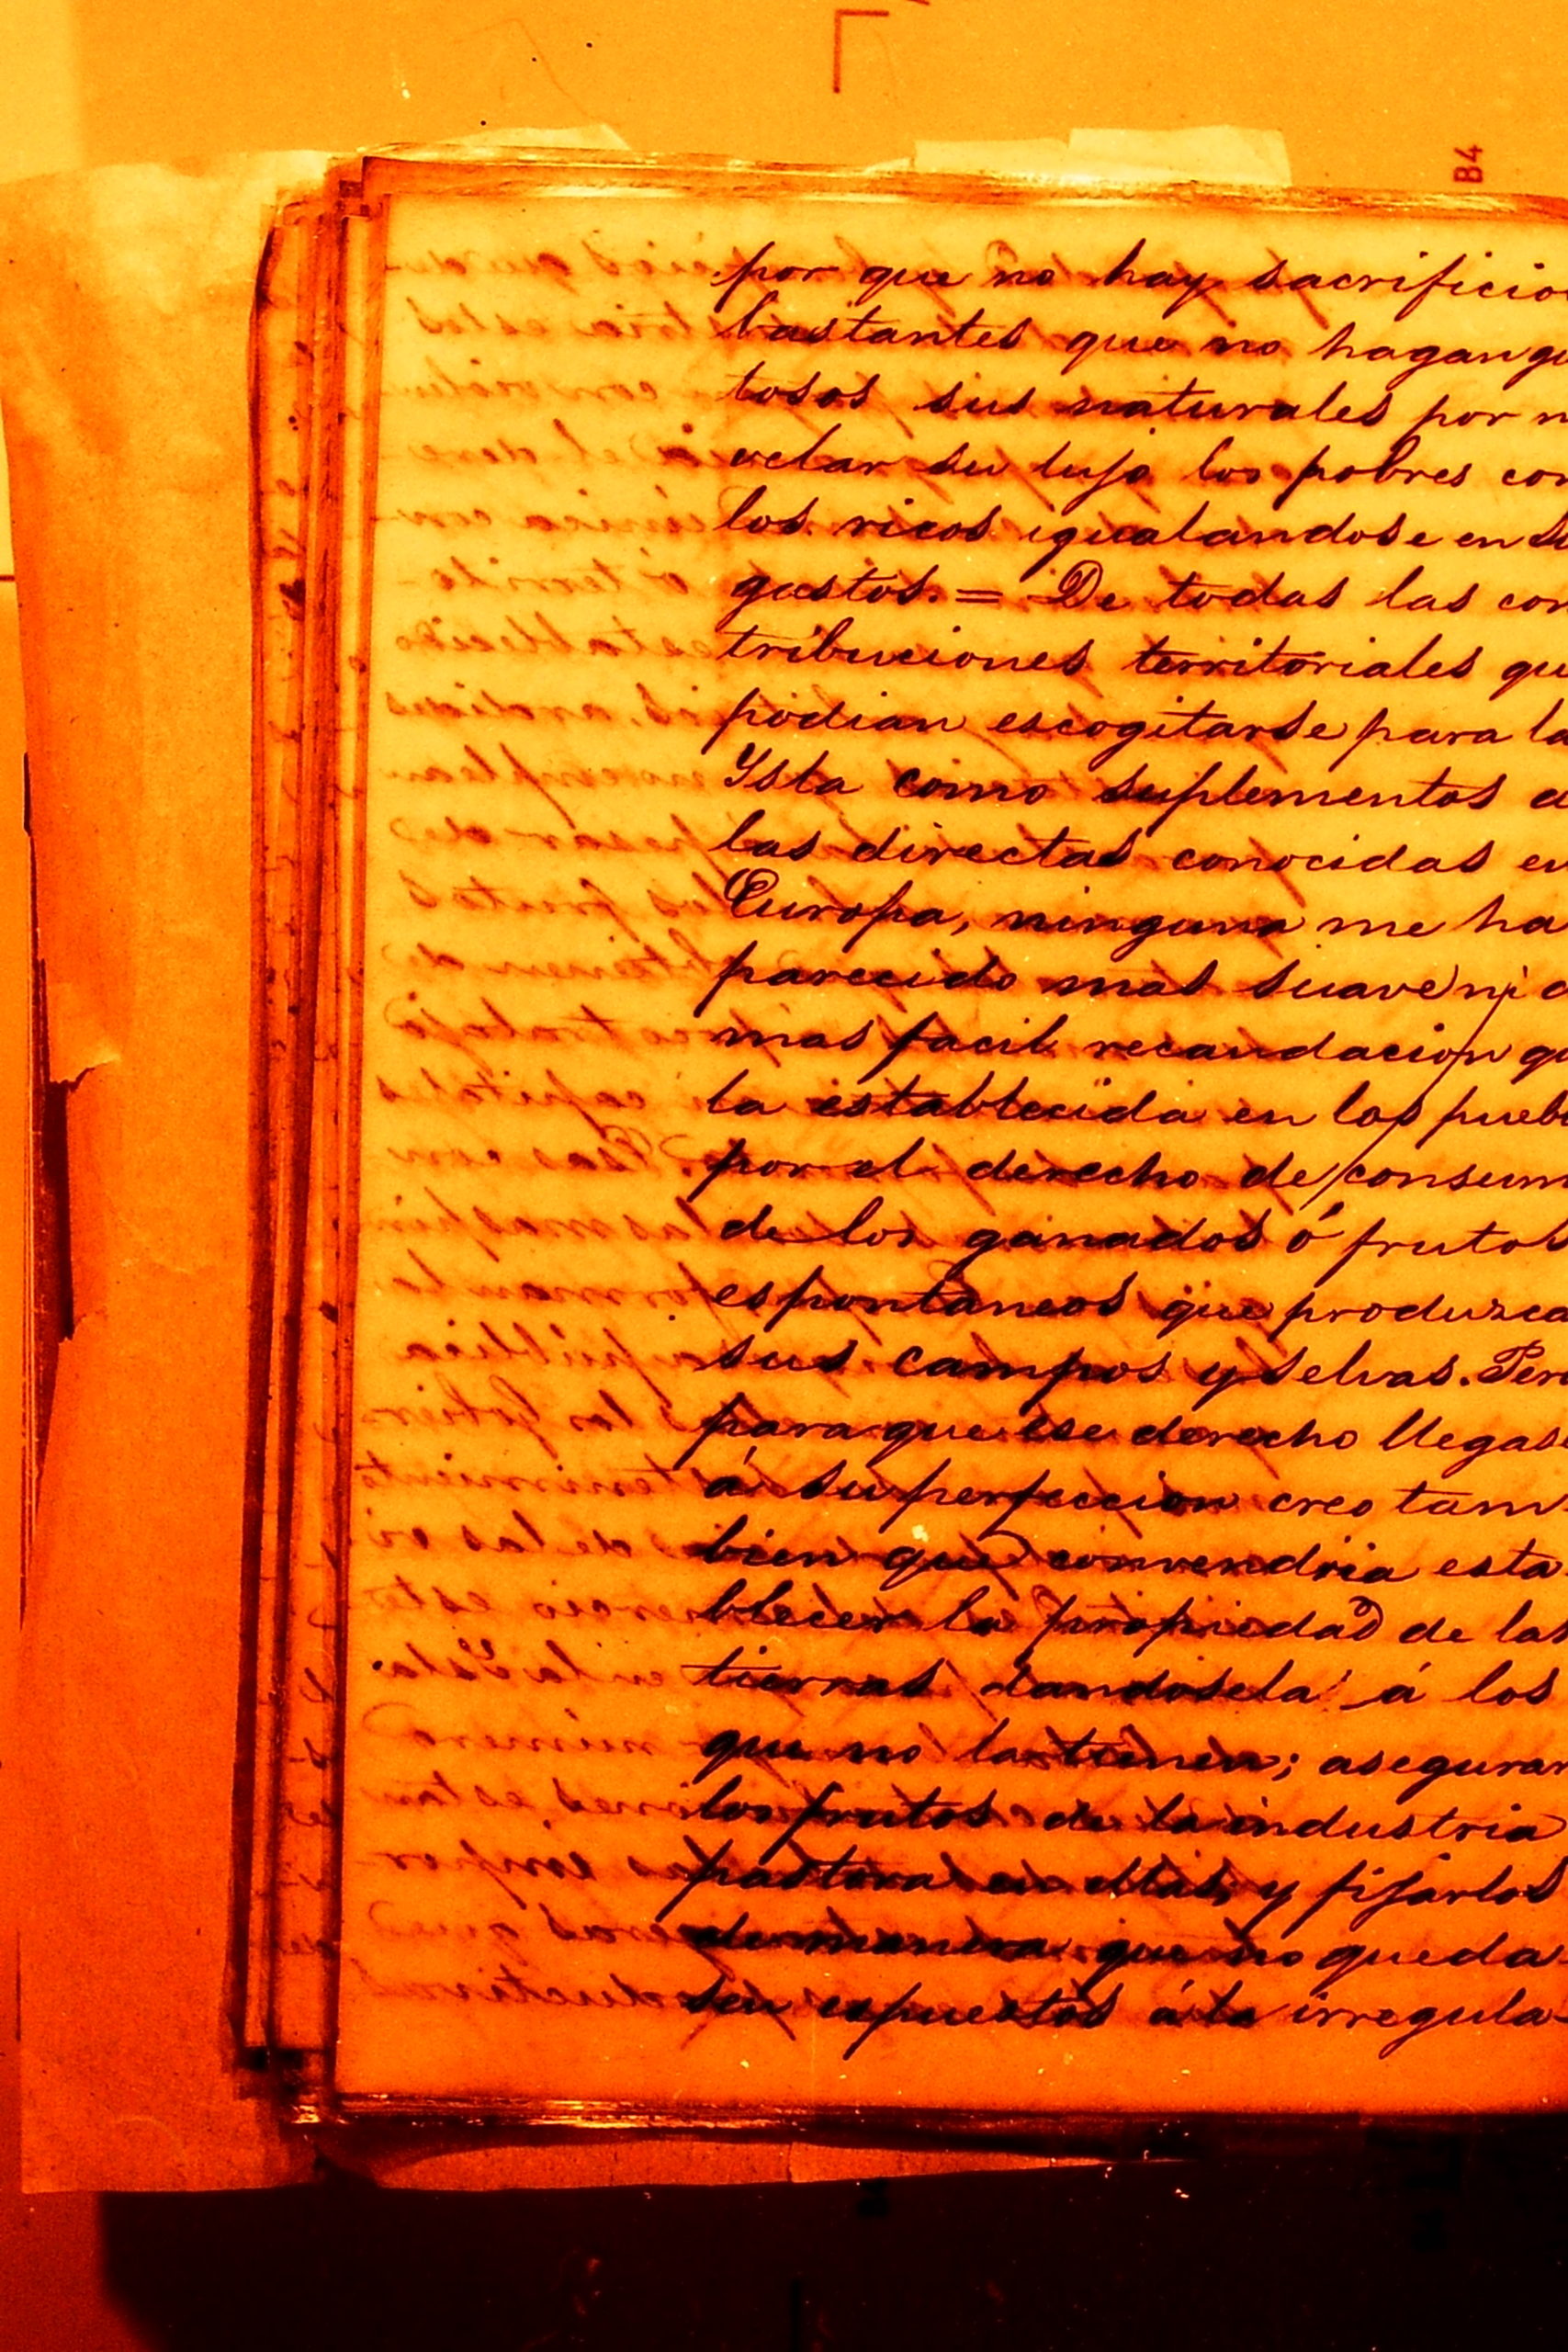 B4
por que no hay sacrificio
bastantes que no hagan gu
tosos sus naturales por n
velar su lujo los pobres con
los ricos igualandose en su
gastos. = De todas las con
tribuciones territoriales qu
podian escogitarse para la
Ysla como suplementos a
las directas conocidas en
Europa, ninguna me ha
parecido mas suave ni d
mas facil recaudacion qu
la establecida en los puebl
por el derecho de consum
de los ganados ó frutos
espontaneos que produzca
sus campos y selvas. Per
para que ese derecho llegas
á su perfeccion creo tam-
bien que convendria esta-
blecer la propiedad de las
tierras dandosela á los
que no la tienen; asegurar
los frutos de la industria
pastoral en ellas, y fijarlos
de manera que no queda-
sen espuestos á la irregula-